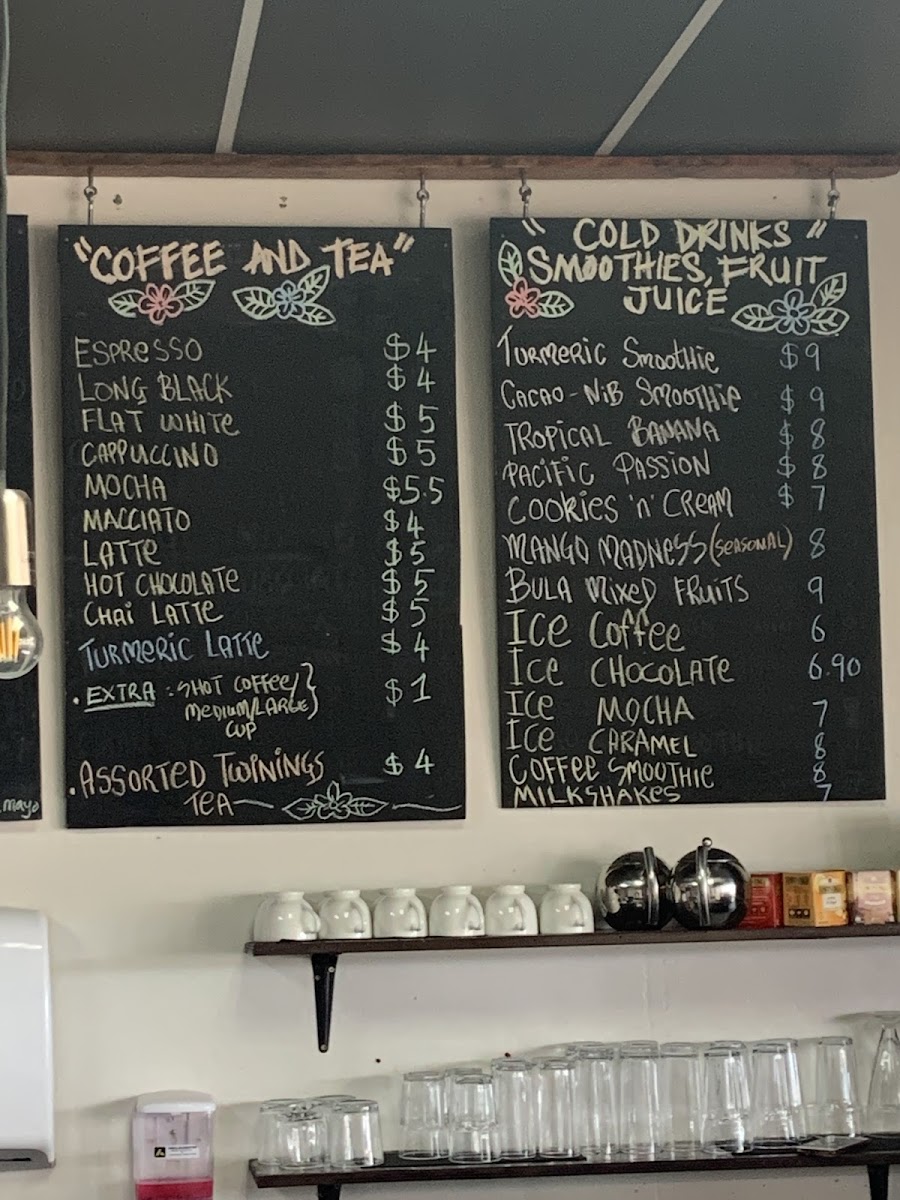 "COFFEE AND TEA"
ESPRESSO $4
LONG BLACK $4
FLAT WHITE $5
CAPPUCCINO $5
MOCHA $5.5
MACCIATO $4
LATTE $5
HOT CHOCOLATE $5
CHAI LATTE $5
TURMERIC LATTE $4
. EXTRA : SHOT COFFEE/ } $1
MEDIUM/LARGE
CUP
. ASSORTED TWININGS $4
TEA
" COLD DRINKS "
SMOOTHIES, FRUIT
JUICE
TURMERIC Smoothie $9
CACAO-NIB Smoothie $9
TROPICAL BANANA $8
PACIFIC PASSION $8
COOKIES 'n' CREAM $7
MANGO MADNESS (SEASONAL) 8
BULA MIXED FRUITS 9
Ice Coffee 6
Ice CHOCOLATE 6.90
Ice MOCHA 7
Ice CARAMEL 8
COFFEE SMOOTHIE 8
MILKSHAKES 7
mayo